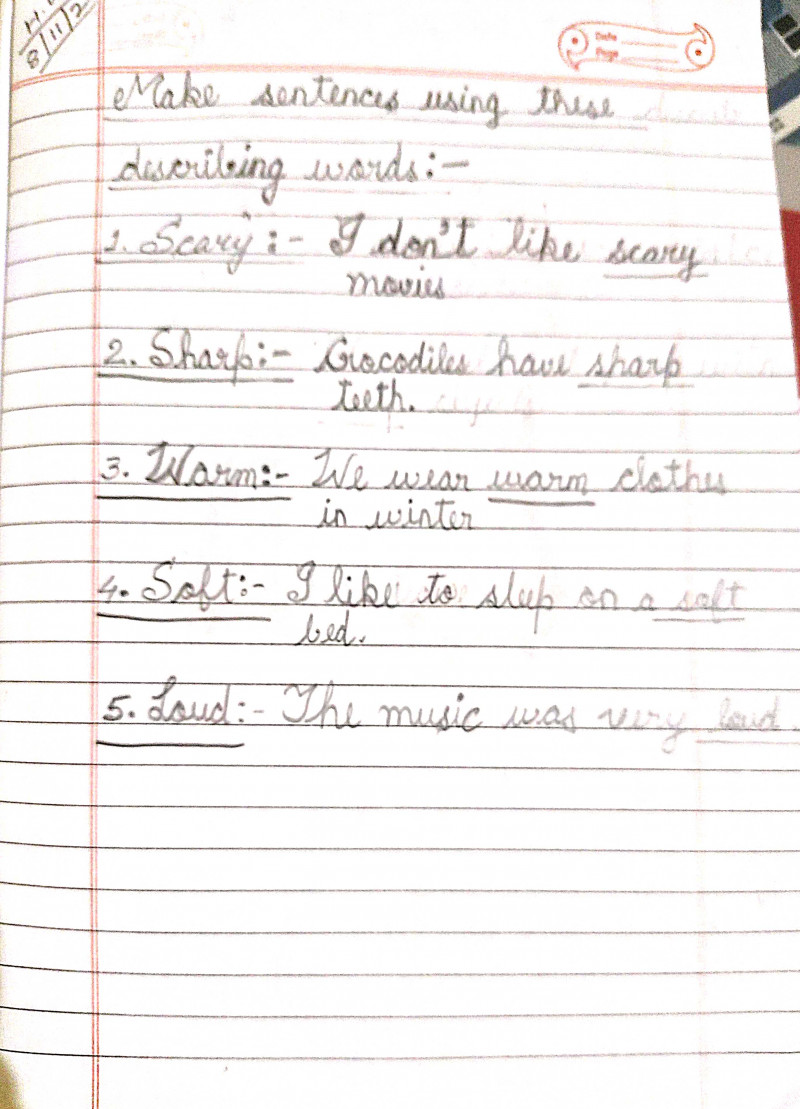 8/11/2
Date
Page
Make sentences using these
describing words:-
1. Scary:- I don't like scary
movies
2. Sharp:- Crocodiles have sharp
teeth.
3. Warm:- We wear warm clothes
in winter
4. Soft:- I like to sleep on a soft
bed.
5. Loud:- The music was very loud.